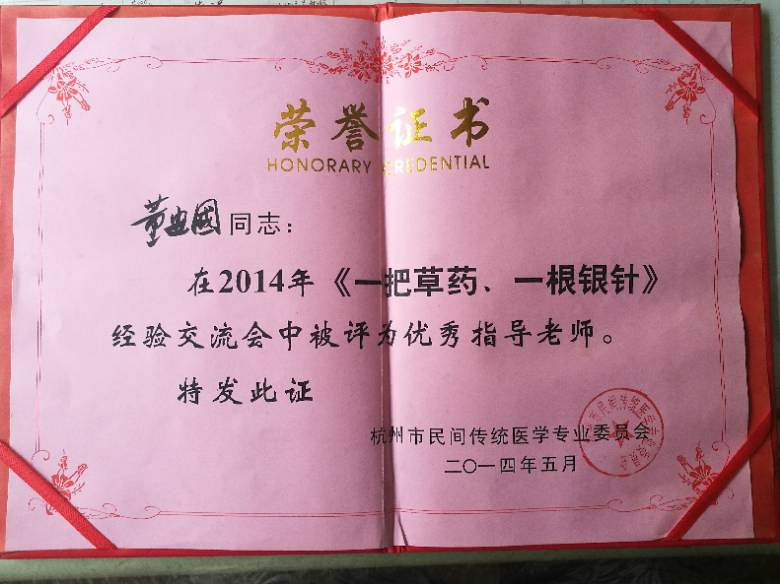 荣誉证书
HONORARY CREDENTIAL
董安國同志:
在2014年《一把草药、一根银针》
经验交流会中被评为优秀指导老师。
特发此证
杭州市民间传统医学专业委员会
二〇一四年五月